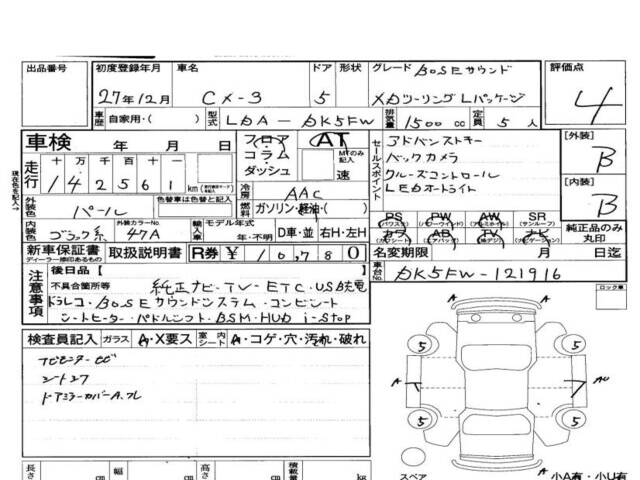 出品番号 初度登録年月 車名 ドア 形状 グレード BOSEサウンド 評価点
27年12月 CX-3 5 XDツーリング Lパッケージ 4
車歴 自家用・( ) 型式 LDA-DK5FW 排気量 1500cc 定員 5人
車検 年 月 日 フロア コラム ダッシュ AT MTのみ記入 速
セールスポイント アドバンストキー
バックカメラ
クルーズコントロール
LEDオートライト
[外装] B
[内装] B
走行 十万千百十一 142561 km
色替車は色替と記入
現在色を記入
外装色 パール
冷房 AAC
燃料 ガソリン・軽油・( )
内装色 ブラック系 外装カラーNo. 47A 輸入車 モデル年式 年・不明 D車・並 右H・左H
PS (パワステ) PW (パワーウィンド) AW (アルミホイル) SR (サンルーフ)
カワ (カワシート) AB (エアバッグ) TV (純正) ナビ (ナビゲーション)
純正品のみ丸印
新車保証書 ディーラー捺印あるもの 取扱説明書 R券 ¥10,780
名変期限 月 日迄
車台No. DK5FW-121916
注意事項 後日品 [ ]
不具合箇所等 純正ナビ・TV・ETC・USB充電
ドラレコ・BOSEサウンドシステム・コンビシート
シートヒーター・パドルシフト・BSM・HUD i-stop
ロック車
検査員記入 ガラス A・X要ス 室内シート A・コゲ・穴・汚れ・破れ
ドアミラーカバーA.
A
5 5
A A AU
5 5
A
スペア 小A有・小U有
長さ cm 幅 cm 高さ cm 積載量 kg